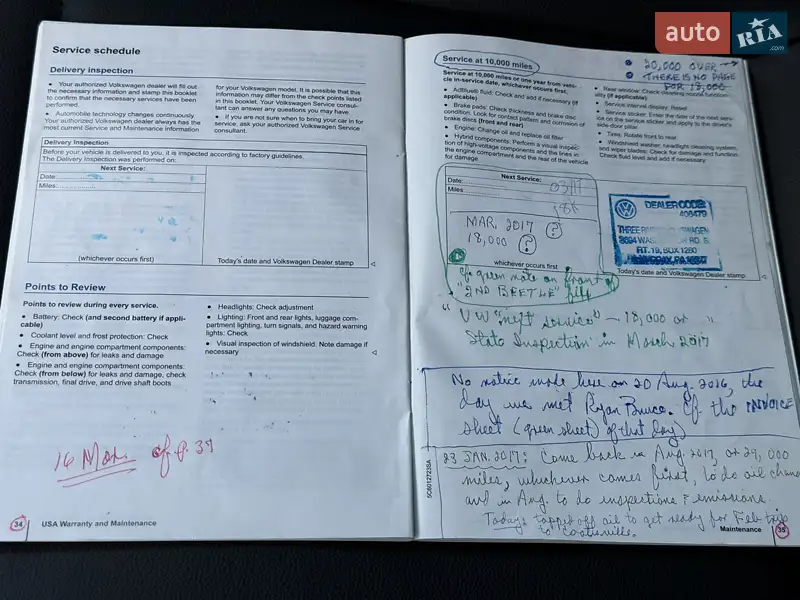 auto RIA.com
Service schedule
Delivery inspection
• Your authorized Volkswagen dealer will fill out
the necessary information and stamp this booklet
to confirm that the necessary services have been
performed.
• Automobile technology changes continuously.
Your authorized Volkswagen dealer always has the
most current Service and Maintenance information
for your Volkswagen model. It is possible that this
information may differ from the check points listed
in this booklet. Your Volkswagen Service consul-
tant can answer any questions you may have.
• If you are not sure when to bring your car in for
service, ask your authorized Volkswagen Service
consultant.
Delivery Inspection
Before your vehicle is delivered to you, it is inspected according to factory guidelines.
The Delivery Inspection was performed on:
Next Service:
Date:
Miles:
(whichever occurs first)
Today's date and Volkswagen Dealer stamp
Points to Review
Points to review during every service.
• Battery: Check (and second battery if appli-
cable)
• Coolant level and frost protection: Check
• Engine and engine compartment components:
Check (from above) for leaks and damage
• Engine and engine compartment components:
Check (from below) for leaks and damage, check
transmission, final drive, and drive shaft boots
• Headlights: Check adjustment
• Lighting: Front and rear lights, luggage com-
partment lighting, turn signals, and hazard warning
lights: Check
• Visual inspection of windshield. Note damage if
necessary
16 Mar. cf p. 37
34 USA Warranty and Maintenance
Service at 10,000 miles
Service at 10,000 miles or one year from vehi-
cle in-service date, whichever occurs first.
• AdBlue® fluid: Check and add if necessary (if
applicable)
• Brake pads: Check thickness and brake disc
condition. Look for contact pattern and corrosion of
brake discs (front and rear)
• Engine: Change oil and replace oil filter
• Hybrid components: Perform a visual inspec-
tion of high-voltage components and the lines in
the engine compartment and the rear of the vehicle
for damage.
• 20,000 OVER →
• THERE IS NO PAGE
FOR 18,000
• Rear window: Check cleaning
(if applicable)
• Service interval display: Reset
• Service sticker: Enter the date of the next serv-
ice on the service sticker and apply to the driver's
side door pillar
• Tires: Rotate front to rear
• Windshield washer, headlight cleaning system,
and wiper blades: Check for damage and function.
Check fluid level and add if necessary
Next Service:
Date: 03/17
Miles 18K
MAR 2017 ?
18,000 ?
whichever occurs first
DEALER CODE
409479
RT. 19, BOX 1280
Today's date and Volkswagen Dealer stamp
cf green note on front of
"2ND BEETLE" file
"VW "next service" – 18,000 or "
State Inspection in March 2017
No notice made here on 20 Aug. 2016, the
day we met Ryan Bruce. Cf the INVOICE
sheet (green sheet) of that day)
23 JAN. 2017: Come back in Aug 2017, or 29,000
miles, whichever comes first, to do oil change
and in Aug. to do inspections & emissions.
Today: topped off oil to get ready for Feb trip
to Coatesville.
5C6012723SA
Maintenance 35